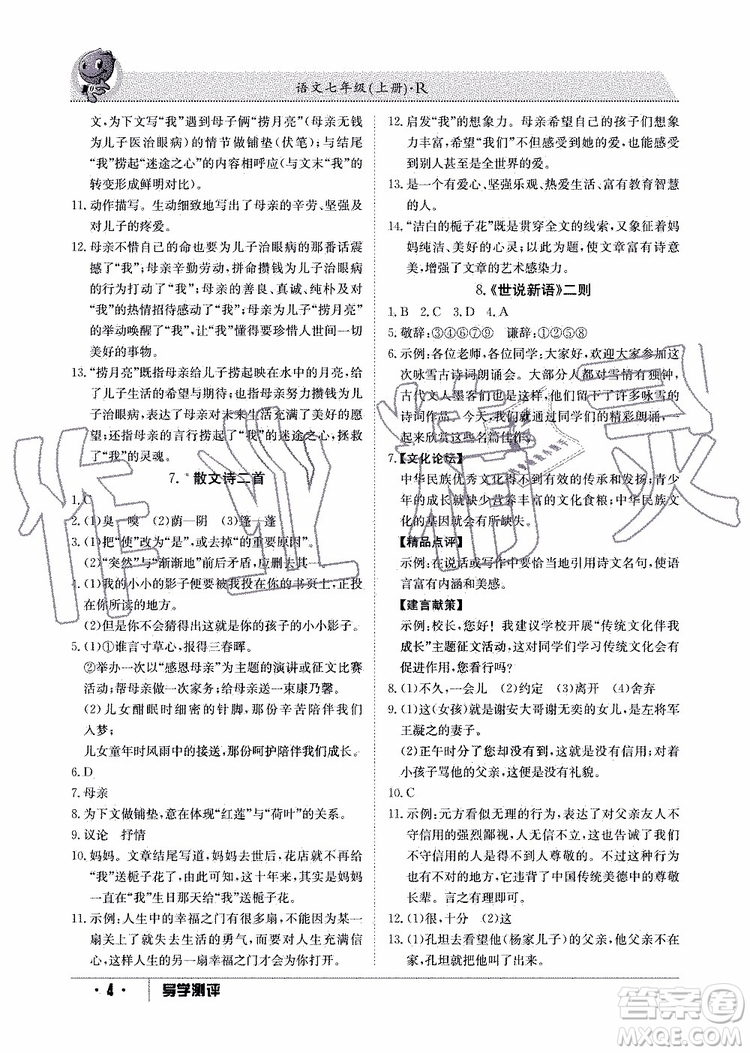 语文七年级(上册)·R
文，为下文写“我”遇到母子俩“捞月亮”(母亲无钱
为儿子医治眼病)的情节做铺垫(伏笔)；与结尾
“我”捞起“迷途之心”的内容相呼应(与文末“我”的
转变形成鲜明对比)。
11. 动作描写。生动细致地写出了母亲的辛劳、坚强及
对儿子的疼爱。
12. 母亲不惜自己的命也要为儿子治眼病的那番话震
撼了“我”；母亲辛勤劳动，拼命攒钱为儿子治眼病
的善良、真诚感染了“我”；母亲朴实、纯朴和对“我”
的热情招待感动了“我”；母亲为儿子“捞月亮”的
举动唤醒了“我”，让“我”懂得要珍惜人世间一切
美好的事物。
13. “捞月亮”既指母亲给儿子捞起映在水中的月亮，给
了儿子生活的希望与期待；也指母亲努力攒钱为
儿子治眼病，表达了母亲对未来生活的希望与信
心；还指母亲的言行捞起了“我”的迷途之心，拯救
了“我”的灵魂。
7. *散文诗二首
1. C
2. (1)臭 嗅 (2)荫—阴 (3)篷—蓬
3. (1)把“使”改为“是”，或去掉“的重要原因”。
(2)“突然”与“渐渐地”前后矛盾，应删去其一
4. (1)我的小小的影子便要投在你的书页上，正投
在你所读的地方。
(2)你会不会猜得出这就是你的孩子的小小影子。
5. (1)①谁言寸草心，报得三春晖。
②举办一次以“感恩母亲”为主题的演讲或征文比赛
活动；帮母亲做一次家务；给母亲送一束康乃馨。
(2)儿女酣眠时细密的针脚，那份叮咛陪伴我们
入梦；
儿女童年时风雨中的接送，那份呵护陪伴我们成长。
6. D
7. 母亲
8. 为下文做铺垫，意在体现“红莲”与“荷叶”的关系。
9. 议论 抒情
10. 妈妈。文章结尾写道，妈妈去世前一天，花店就不
再给“我”送栀子花了，由此可见，妈妈去世前，她
一直在“我”生日那天给“我”送栀子花。
11. 示例：人生中的幸福之门有很多扇，当你失去某一
扇幸福之门时，应该有遗忘失去的豁达，有打开另
一扇幸福之门去生活的勇气，而只有这样，你才会
真正拥有幸福。
12. 启发“我”的想象力。母亲希望自己的孩子们想象
力丰富，希望“我们”不但感受到她的爱，也希望感
受到别人甚至是全世界的爱。
13. 是一个有爱心、坚强乐观、热爱生活、富有教育智慧
的母亲。
14. “洁白的栀子花”既是贯穿全文的线索，又象征着妈
妈纯洁、美好的心灵；以此为题，使文章富有诗意
美，增强了文章的艺术感染力。
8. 《世说新语》二则
1. B 2. C 3. D 4. A
5. 敬辞：③④⑥⑦⑨ 谦辞：①②⑤⑧
6. 示例：各位老师，各位同学：大家好，欢迎大家参加这
次咏雪古诗词朗诵会。大部分人都对雪情有独钟，
古代文人墨客们也不例外，他们留下了许多咏雪的
诗词作品。今天，就请通过同学们的精彩朗诵，一
起来欣赏这些名篇佳作。
7. 【文化论坛】
中华民族优秀文化得不到有效的传承和发扬；青少
年的成长缺少了营养丰富的文化食粮；中华民族文
化在内容构成上有所缺失。
【精品点评】
示例：在说话或写作中要恰当引用诗文名句，使语
言富有内涵和美感。
【建言献策】
示例：校长，您好！我建议学校开展“传统文化伴我
成长”主题征文活动，这对同学们学习传统文化大
有帮助。
8. (1)不久，一会儿 (2)约定 (3)离开 (4)舍弃
9. (1)这(女孩)就是谢安大哥谢无奕的女儿，是左将军
王凝之的妻子。
(2)正午时分了您还没到，就是没有信用；对着人家
孩子骂他的父亲，这便是没有礼貌。
10. C
11. 示例：元方看似无理的行为，表达了对父亲友人不
守信用的强烈鄙视，友人无信无义，无信又无礼，
不守信用的人是得不到别人尊敬的。但是对父亲
的友人不予理睬，它违背了中国传统美德中的尊敬
长辈。(言之成理即可)
12. (1)很，十分 (2)这
13. (1)孔坦去看望他(杨家儿子)的父亲，恰巧他父亲
不在，孔坦就叫出了这个孩子。
·4· 导学测评
作业精灵
答案圈